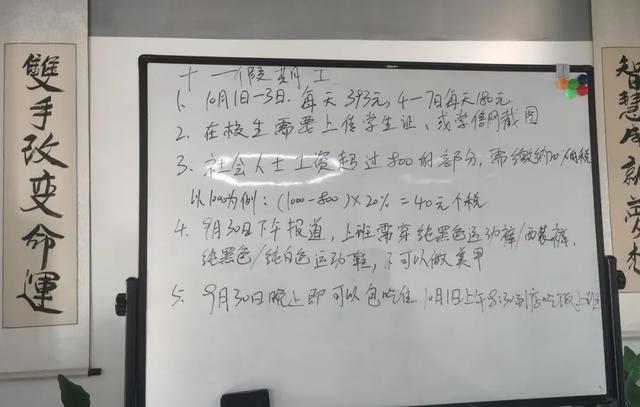 雙手改變命運
十一假期工
1. 10月1日-3日.每天393元,4-7日每天180元
2. 在校生需要上传学生证、或学信网截图
3. 社会人士工资超过800的部分,需缴纳20%个税
以1000为例:(1000-800)×20%=40元个税
4. 9月30日下午报道,上班需穿纯黑色运动裤/西装裤,
纯黑色/纯白色运动鞋,不可以做美甲
5. 9月30日晚上即可以包吃住.10月1日上午8:30到店吃饭上班
智慧成就夢想